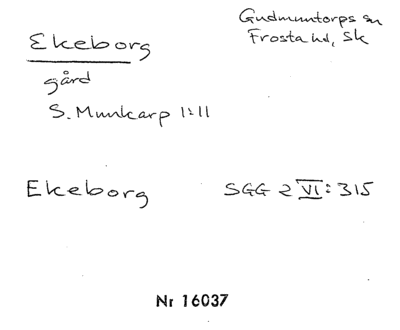 Ekeborg
Gudmuntorps sn
Frosta hd, Sk
gård
S. Munkarp 1:11
Ekeborg SGG 2 VI: 315
Nr 16037